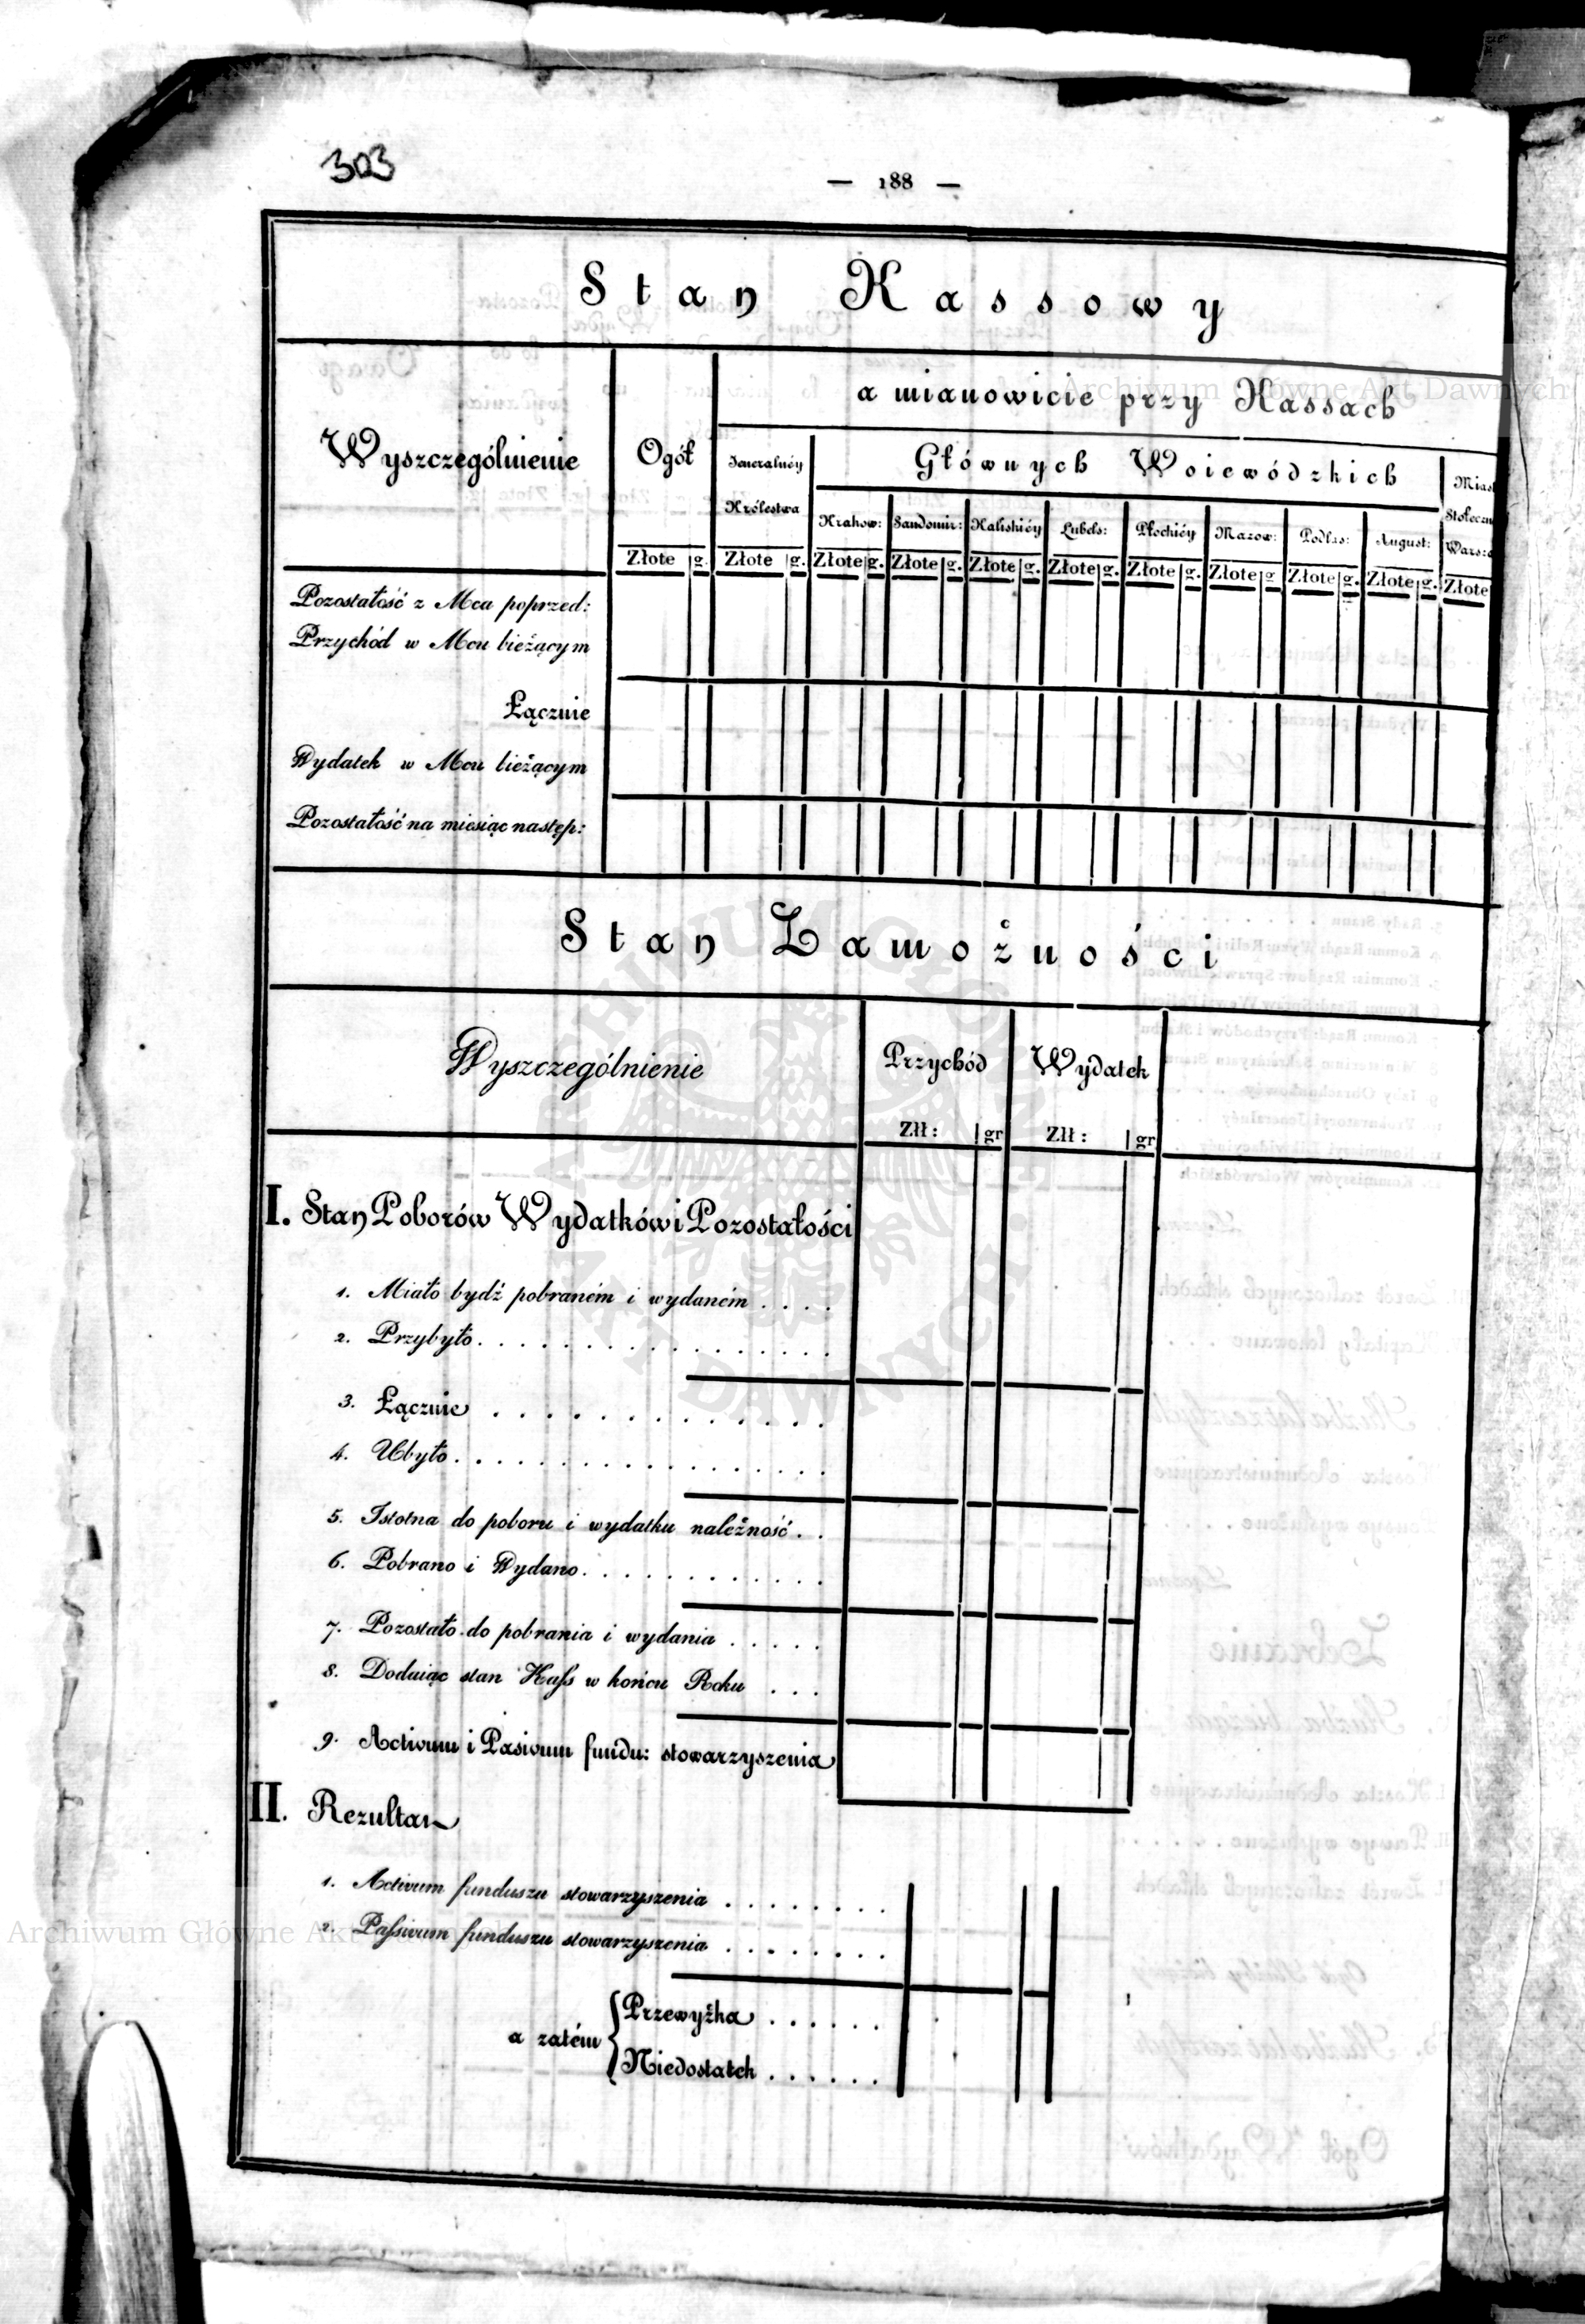 303
— 188 —
Stan Kassowy
a mianowicie przy Kassach
Wyszczególnienie
Ogół
Jeneralnéy
Królestwa
Głównych Woiewódzkich
Krakow:
Sandomir:
Kaliskiéy
Lubels:
Płockiéy
Mazow:
Podlas:
August:
Stołeczn
Złote g. Złote g. Złote g. Złote g. Złote g. Złote g. Złote g. Złote g. Złote g. Złote g. Złote
Pozostałość z Mca poprzed:
Przychód w Mcu bieżącym
Łącznie
Wydatek w Mcu bieżącym
Pozostałość na miesiąc następ:
Stan Zamożności
Wyszczególnienie
Przychód
Wydatek
Złł: gr Złł: gr
I. Stan Poborów Wydatków i Pozostałości
1. Miało bydź pobraném i wydaném . . . .
2. Przybyło . . . . . . . . . . . . . .
3. Łącznie . . . . . . . . . . . . .
4. Ubyło . . . . . . . . . . . . . . .
5. Istotna do poboru i wydatku należność . .
6. Pobrano i Wydano . . . . . . . . . .
7. Pozostało do pobrania i wydania . . . . .
8. Dodaiąc stan Kass w końcu Roku . . .
9. Activum i Pasivum fundu: stowarzyszenia
II. Rezultat
1. Activum funduszu stowarzyszenia . . . . . . .
2. Passivum funduszu stowarzyszenia . . . . . . .
a zatém { Przewyżka . . . . . .
Niedostatek . . . . . .
Archiwum Główne Akt Dawnych
ARCHIWUM GŁÓWNE AKT DAWNYCH